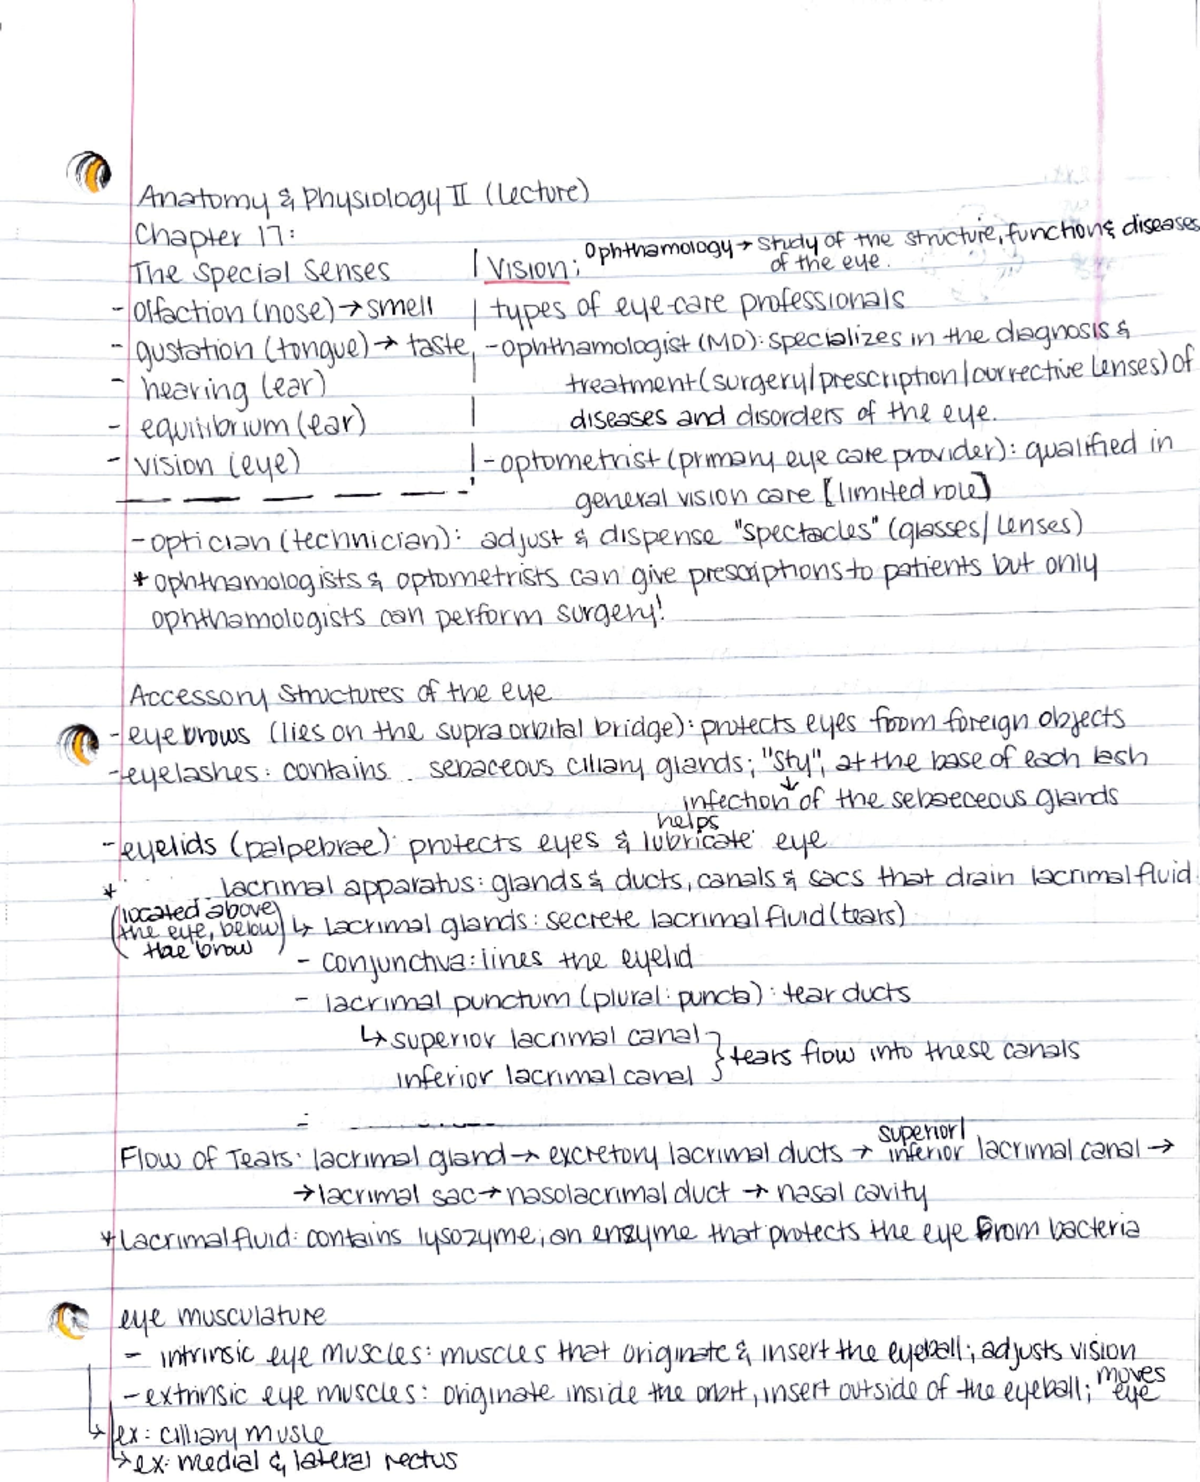 Anatomy & Physiology II (Lecture)
Chapter 17:
The Special Senses
- olfaction (nose) → smell
- gustation (tongue) → taste
- hearing (ear)
- equilibrium (ear)
- vision (eye)
Vision: Ophthamology → study of the structure, function & diseases
of the eye.
types of eye-care professionals
- Ophthamologist (MD): specializes in the diagnosis &
treatment (surgery/prescription/corrective lenses) of
diseases and disorders of the eye.
- optometrist (primary eye care provider): qualified in
general vision care [limited role]
- optician (technician): adjust & dispense "spectacles" (glasses/lenses)
* ophthamologists & optometrists can give prescriptions to patients but only
ophthamologists can perform surgery!
Accessory Structures of the eye
- eyebrows (lies on the supraorbital bridge): protects eyes from foreign objects
- eyelashes: contains sebaceous ciliary glands; "Sty", at the base of each lash
↓
infection of the sebaeceous glands
- eyelids (palpebrae): protects eyes & helps lubricate eye
* lacrimal apparatus: glands & ducts, canals & sacs that drain lacrimal fluid
(located above
the eye, below
thae brow)
↳ lacrimal glands: secrete lacrimal fluid (tears)
- conjunctiva: lines the eyelid
- lacrimal punctum (plural: puncta): tear ducts
↳ superior lacrimal canal
inferior lacrimal canal } tears flow into these canals
Flow of Tears: lacrimal gland → excretory lacrimal ducts → superior/inferior lacrimal canal →
→ lacrimal sac → nasolacrimal duct → nasal cavity
* Lacrimal fluid: contains lysozyme; an enzyme that protects the eye from bacteria
eye musculature
- intrinsic eye muscles: muscles that originate & insert the eyeball; adjusts vision
- extrinsic eye muscles: originate inside the orbit, insert outside of the eyeball; moves eye
↳ ex: cilliary musle
↳ ex: medial & lateral rectus